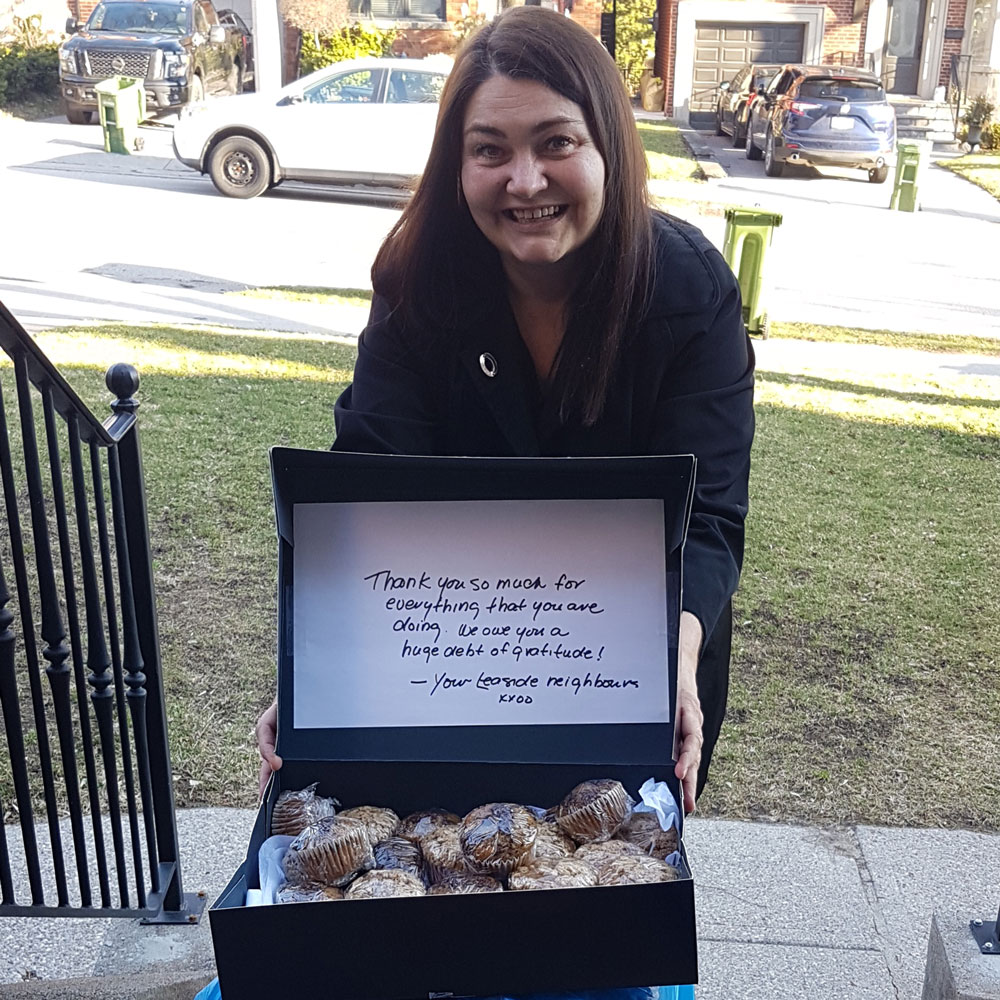 Thank you so much for
everything that you are
doing. We owe you a
huge debt of gratitude!
— Your Leaside neighbours
xxoo